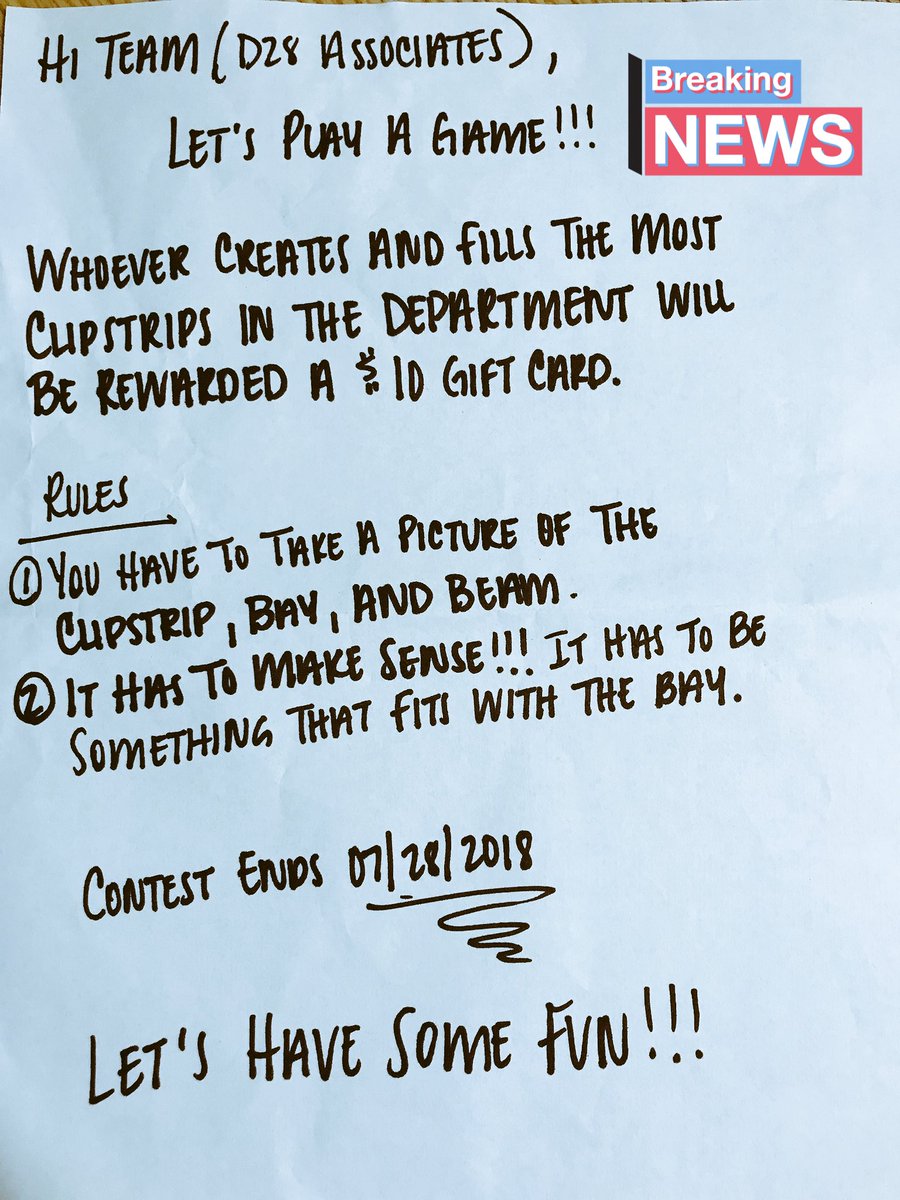 HI TEAM (D28 ASSOCIATES),
Breaking
NEWS
LET'S PLAY A GAME!!!
WHOEVER CREATES AND FILLS THE MOST
CLIPSTRIPS IN THE DEPARTMENT WILL
BE REWARDED A $10 GIFT CARD.
RULES
① YOU HAVE TO TAKE A PICTURE OF THE
CLIPSTRIP, BAY, AND BEAM.
② IT HAS TO MAKE SENSE!!! IT HAS TO BE
SOMETHING THAT FITS WITH THE BAY.
CONTEST ENDS 07/28/2018
LET'S HAVE SOME FUN!!!